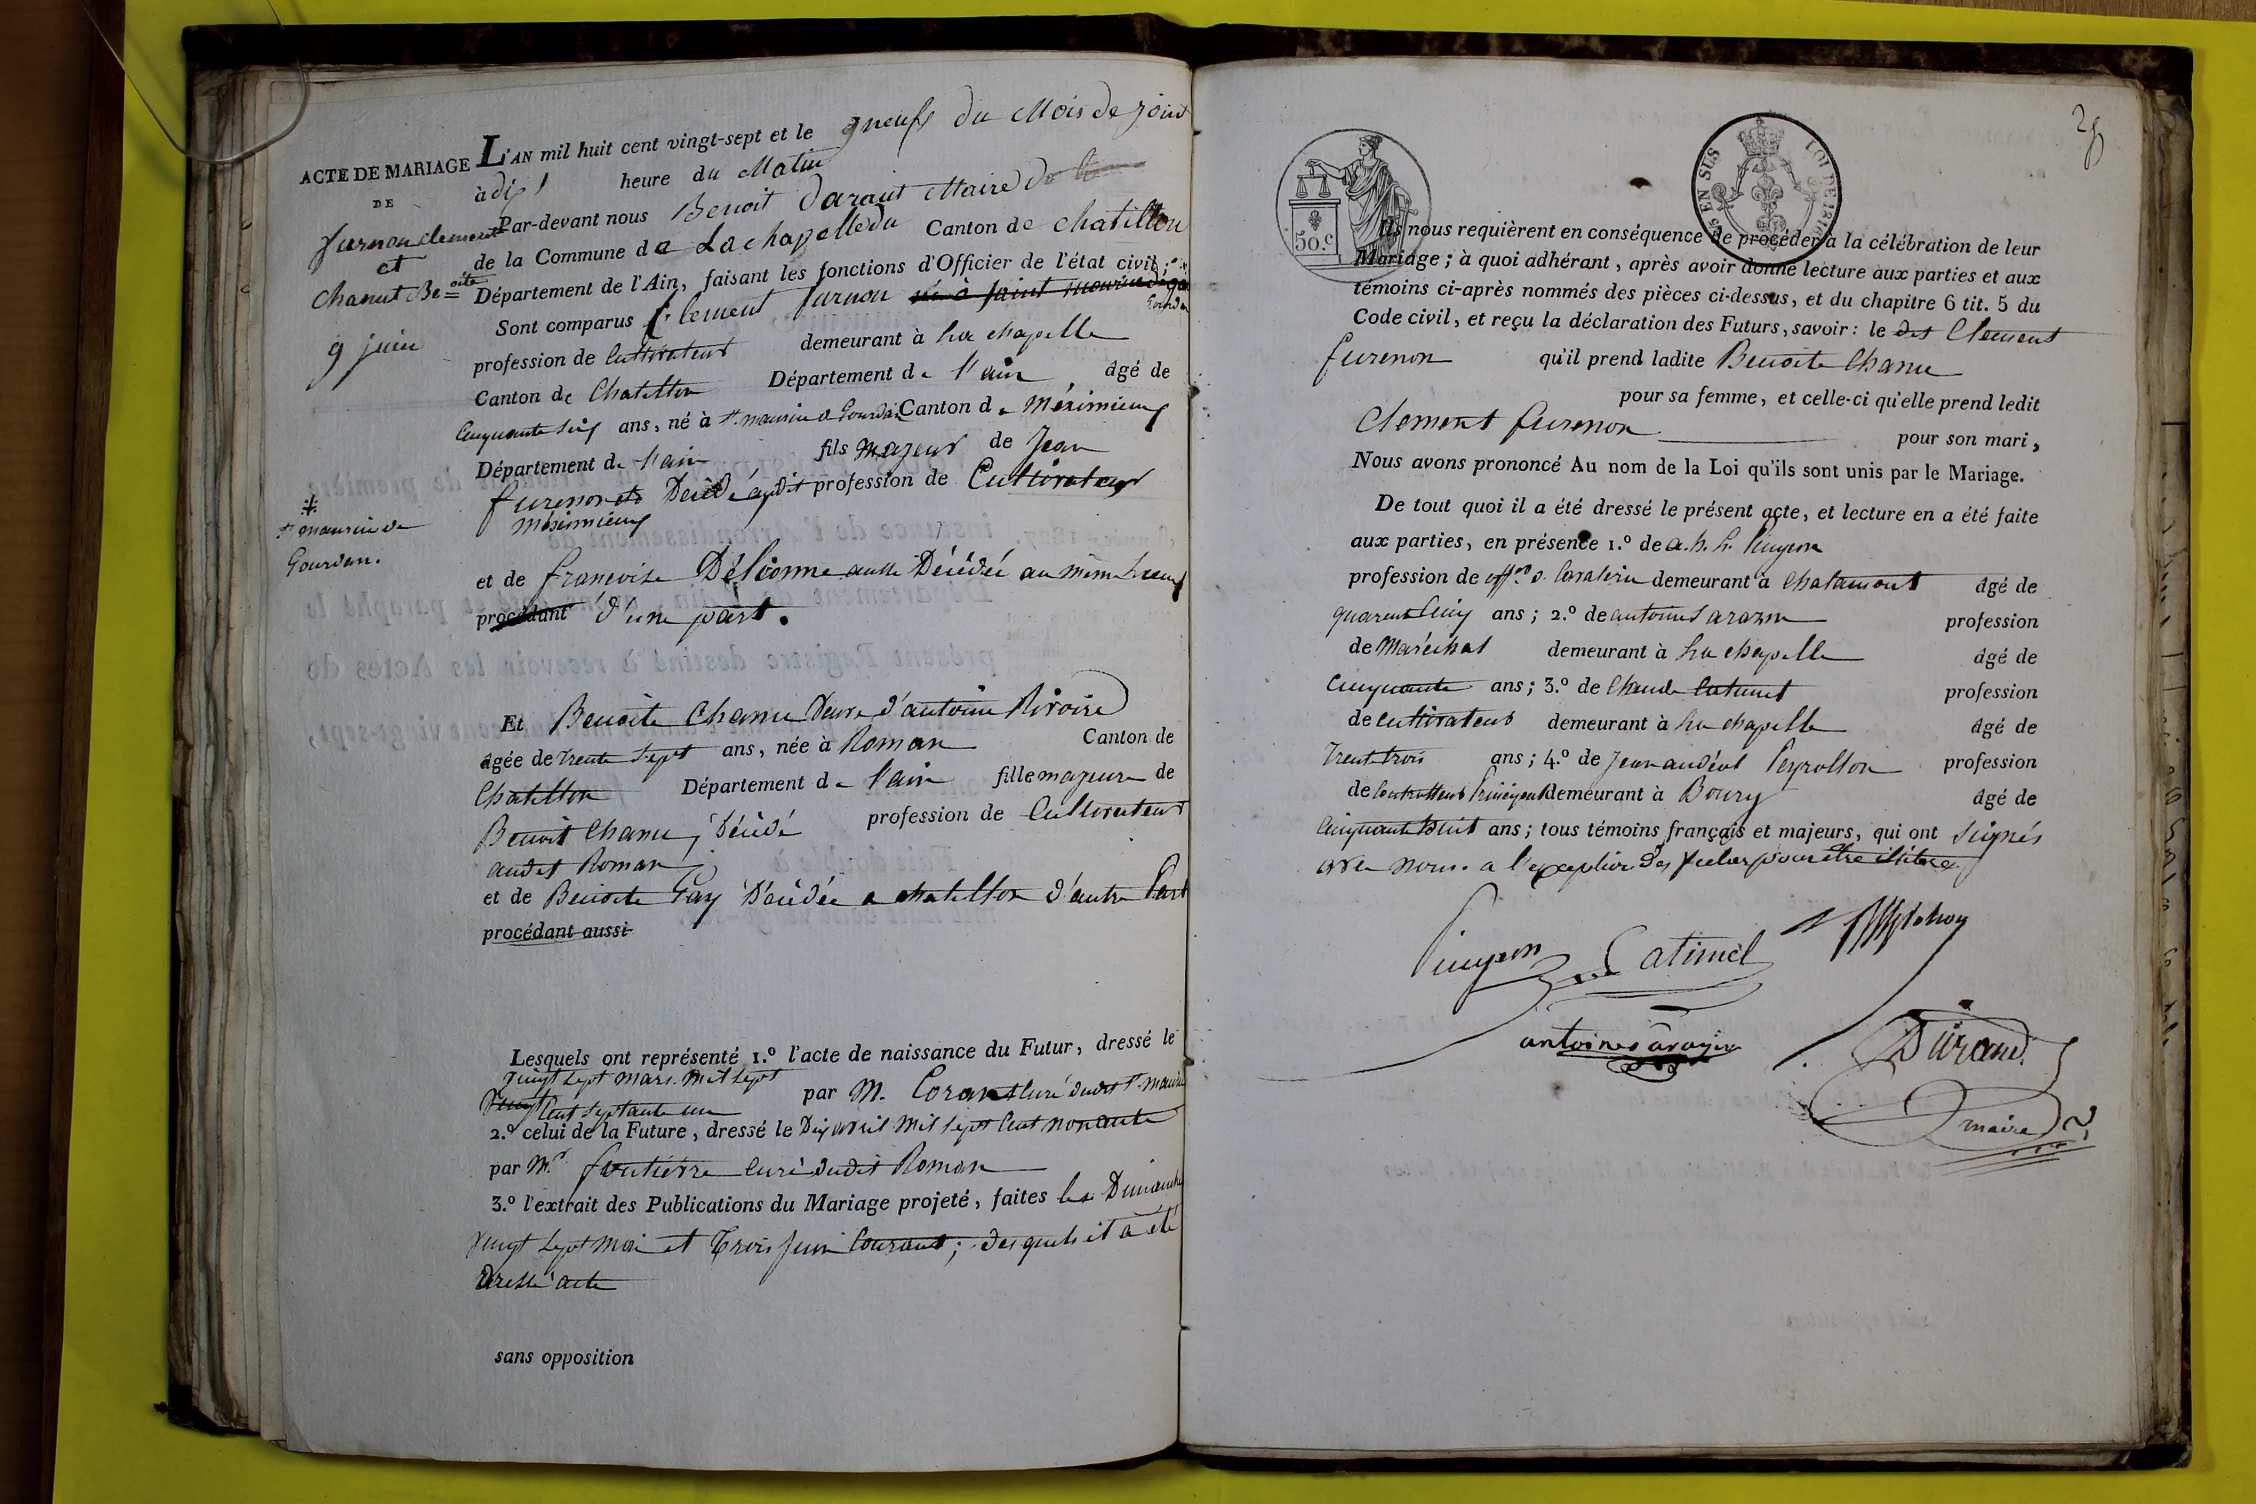 ACTE DE MARIAGE
DE
furnon clement
et
Chanut Be=oite
9 juin
L'AN mil huit cent vingt-sept et le neuf du Mois de join
à dix heure du Matin
Par-devant nous Benoit Durant Maire
de la Commune de La chapelledu Canton de chatillon
Département de l'Ain, faisant les fonctions d'Officier de l'état civil;
Sont comparus Clement furnon né à saint mauri de Gourdan
profession de Cultivateur demeurant à La chapelle
Canton de Chatillon Département de l'ain âgé de
Cinquante six ans, né à St. maurice d Gourdan Canton de Méximieux
Département de l'ain fils majeur de Jean
furenon Décédé audit profession de Cultivateur
méximieux
* St maurice de
Gourdan.
et de francoise Délorme aussi Décédée au même Lieu
procédant d'une part.
Et Benoite Chanu Veuve d'antoine Rivoire
âgée de trente sept ans, née à Roman Canton de
Chatillon Département de l'ain fille majeure de
Benoit Chanu, Décédé profession de Cultivateur
audit Roman
et de Benoite Gay Décédée a chatillon d'autre Part
procédant aussi
Lesquels ont représenté 1.º l'acte de naissance du Futur, dressé le
vingt sept mars mil sept
Cent septante un par M. Coran Curé dudit St. mauri
2.º celui de la Future, dressé le Dix avril mil sept Cent nonante
par Mr. foutiérre Curé dudit Roman
3.º l'extrait des Publications du Mariage projeté, faites les Dimanche
vingt sept mai et trois Juin Courant; desquels il a été
dressé acte
sans opposition
28
50.c
EN SUS
LOI DE 1816
Ils nous requièrent en conséquence de procéder à la célébration de leur
Mariage; à quoi adhérant, après avoir donné lecture aux parties et aux
témoins ci-après nommés des pièces ci-dessus, et du chapitre 6 tit. 5 du
Code civil, et reçu la déclaration des Futurs, savoir: le dit Clement
furenon qu'il prend ladite Benoite Chanu
pour sa femme, et celle-ci qu'elle prend ledit
Clement furenon pour son mari,
Nous avons prononcé Au nom de la Loi qu'ils sont unis par le Mariage.
De tout quoi il a été dressé le présent acte, et lecture en a été faite
aux parties, en présence 1.º de a. h. h. Pingeon
profession de offer. d. Cavalerie demeurant à Chalamont âgé de
quarent Cinq ans; 2.º de antoine Sarazin profession
de Maréchal demeurant à La chapelle âgé de
Cinquante ans; 3.º de Claude Catimel profession
de Cultivateur demeurant à La chapelle âgé de
Trente trois ans; 4.º de Jean andéol Peyrollon profession
de Controlleur Principal demeurant à Bourg âgé de
Cinquante huit ans; tous témoins français et majeurs, qui ont signés
avec nous. a l'exception des futur pour être ilitere.
Pingeon Catimel
antoine sarazin
Durand
maire